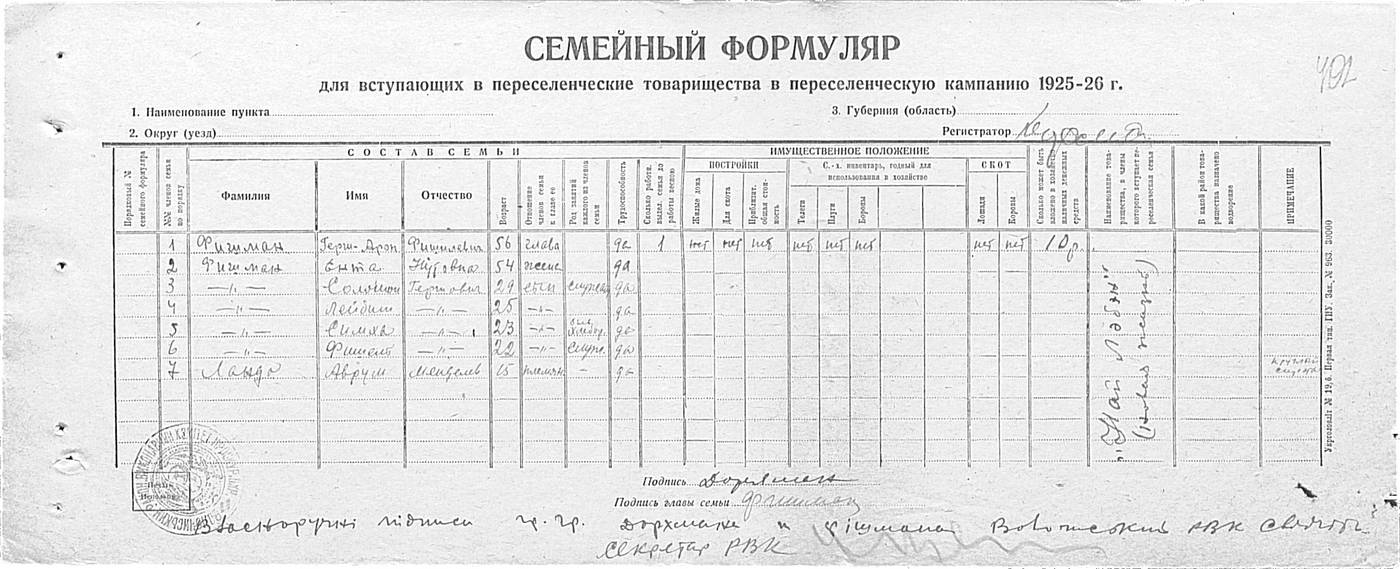 СЕМЕЙНЫЙ ФОРМУЛЯР
для вступающих в переселенческие товарищества в переселенческую кампанию 1925-26 г.
492
1. Наименование пункта
3. Губерния (область)
2. Округ (уезд)
Регистратор
СОСТАВ СЕМЬИ
ИМУЩЕСТВЕННОЕ ПОЛОЖЕНИЕ
ПОСТРОЙКИ
С.-х. инвентарь, годный для использования в хозяйстве
СКОТ
Порядковый № семейного формуляра
№№ членов семьи по порядку
Фамилия
Имя
Отчество
Возраст
Отношение членов семьи к главе ее
Род занятий каждого из членов семьи
Трудоспособность
Сколько работн. выдел. семья до работы весною
Жилые дома
Для скота
Приблизит. общая стоимость
Телеги
Плуги
Бороны
Лошади
Коровы
Сколько может быть вложено в хозяйство наличных денежных средств
Наименование товарищества, в члены которого вступает переселенческая семья
В какой район товарищества назначено водворение
ПРИМЕЧАНИЕ
1 Фишман Герш-Арон Фишилевич 56 глава да 1 нет нет нет нет нет нет нет нет 10 р.
2 Фишман Ента 54 жена да
3 —"— Соломон Гершович 29 сын служащ да
4 —"— Лейбиш —"— 25 —"— да
5 —"— Симха —"— 23 —"— да
6 —"— —"— 22 —"— служ. да
7 Ландо Аврум 15 племян — да
"Най Лэбэн"
(новая жизнь)
Укрголовлит № 19,6. Первая тип. ГПУ. Зак. № 963. 30000
Подпись Дорхман
Подпись главы семьи Фишман
Власноручні підписи гр. гр. Дорхмана и Фішмана РВК
секретар РВК